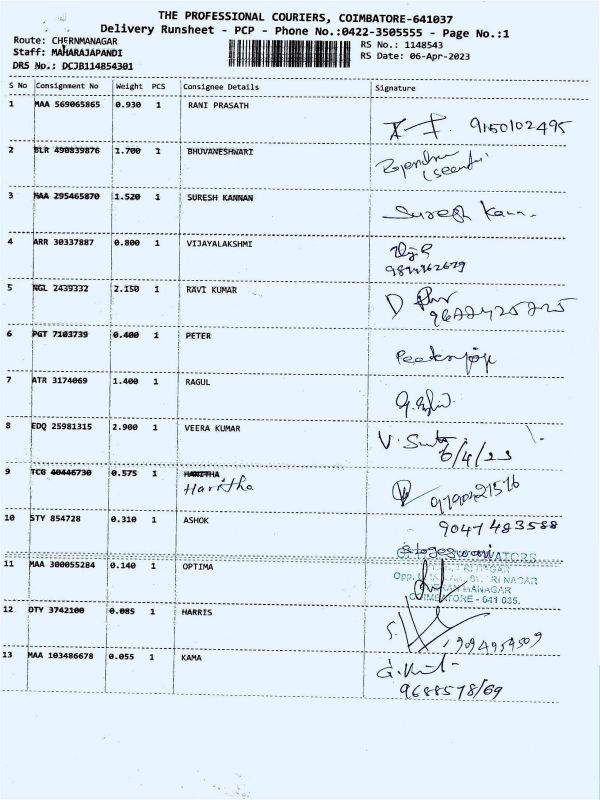 THE PROFESSIONAL COURIERS, COIMBATORE-641037
Delivery Runsheet - PCP - Phone No.:0422-3505555 - Page No.:1
Route: CHERNMANAGAR
Staff: MAHARAJAPANDI
DRS No.: DCJB114854301
RS No.: 1148543
RS Date: 06-Apr-2023
S No Consignment No Weight PCS Consignee Details Signature
1 MAA 569065865 0.930 1 RANI PRASATH 9150102495
2 BLR 490839876 1.700 1 BHUVANESHWARI
3 MAA 295465870 1.520 1 SURESH KANNAN Suresh Kann.
4 ARR 30337887 0.800 1 VIJAYALAKSHMI
5 NGL 2439332 2.150 1 RAVI KUMAR
6 PGT 7103739 0.400 1 PETER
7 ATR 3174069 1.400 1 RAGUL
8 EDQ 25981315 2.900 1 VEERA KUMAR 6/4/23
9 TCG 40446730 0.575 1 HARITHA
Haritha
10 STY 854728 0.310 1 ASHOK 9047483588
11 MAA 300055284 0.140 1 OPTIMA
COIMBATORE - 641 035.
12 DTY 3742100 0.085 1 HARRIS
13 MAA 103486678 0.055 1 KAMA